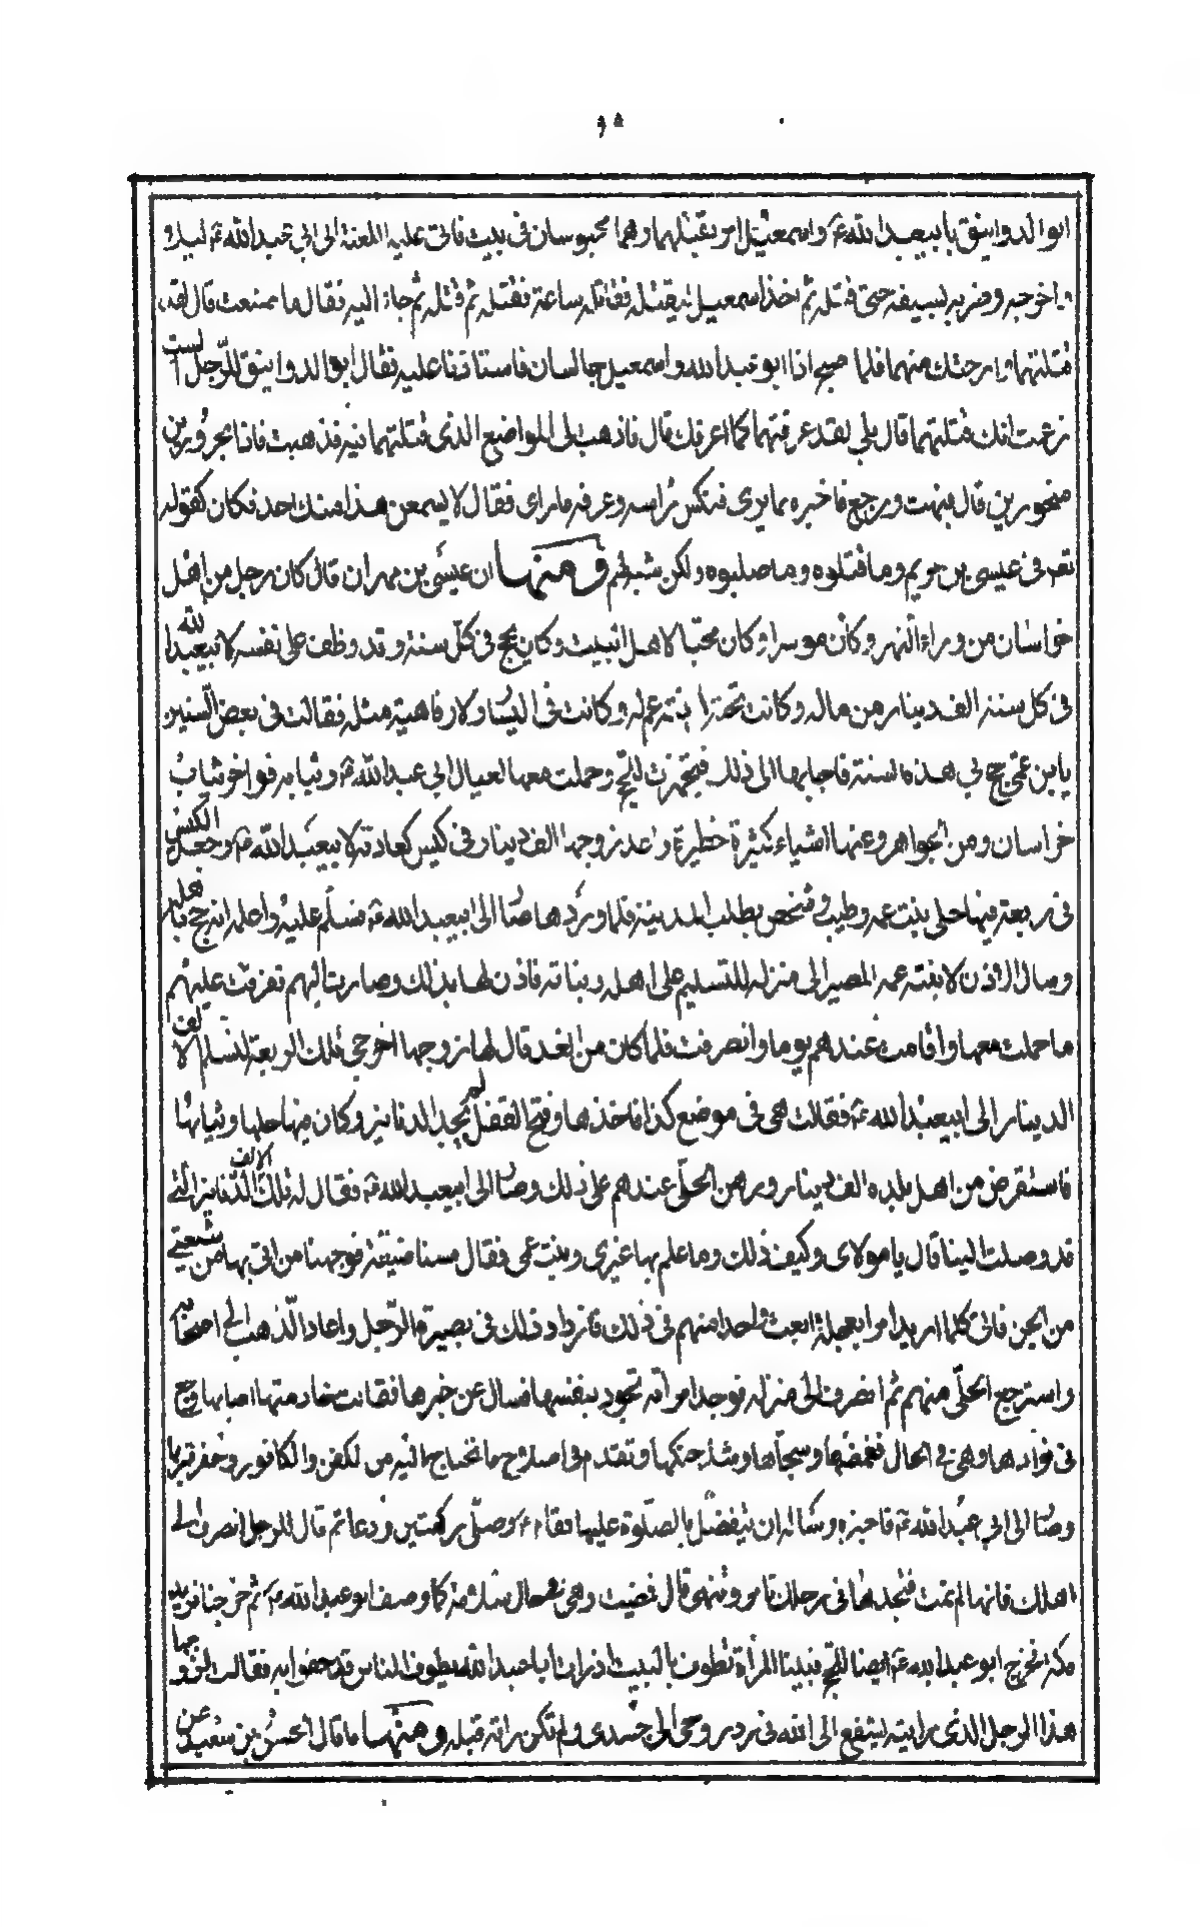 ابو الدوانيق بابيعبد الله ع واسمعيل امر بقتلهما وهما محبوسان في بيت فاتى عليه اللعنة الى ابي عبد الله ع ليلا
واخرجه وضربه بسيفه حتى قتله ثم اخذ اسمعيل ليقتله فقاتله ساعة فقتله ثم قتله ثم جاء اليه فقال ما صنعت قال لقد
قتلتهما وارحتك منهما فلما اصبح اذا ابو عبد الله واسمعيل جالسان فاستاذنا عليه فقال ابو الدوانيق للرجل الست
زعمت انك قتلتهما قال بلى لقد عرفتهما كما اعرفك قال فاذهب الى الموضع الذى قتلتهما فيه فذهبت فاذا بجزورين
منحورين قال فبهت ورجع فاخبره بما يرى فنكس راسه وعرفه ما راى فقال لا يسمعن هذا منك احد فكان كقوله
تعه في عيسى بن مريم وما قتلوه وما صلبوه ولكن شبه لهم ومنها ان عيسى بن مهران قال كان رجل من اهل
خراسان من وراء النهر وكان موسرا وكان محبا لاهل البيت وكان يحج في كل سنة وقد وظف على نفسه لابيعبد الله
في كل سنة الف دينار من ماله وكانت تحته ابنة عم له وكانت في اليسار والرفاهية مثله فقالت في بعض السنين
يا بن عمى حج بي هذه السنة فاجابها الى ذلك فتجهزت للحج وحملت معها لعيال ابي عبد الله ع وثيابه فواخر ثياب
خراسان ومن الجواهر وغيرها اشياء كثيرة خطيرة واعد زوجها الف دينار في كيس كعادته لابيعبد الله ع وجعل الكيس
في ربعة فيها حلى بنت عمه وطيب وشخص يطلب المدينة فلما وردها صار الى ابيعبد الله ع فسلم عليه واعلمه انه حج باهله
وسال الاذن لابنة عمه المصير الى منزله للتسليم على اهله وبناته فاذن لها بذلك وصارت اليهم ففرقت عليهم
ما حملت معها واقامت عندهم يوما وانصرفت فلما كان من الغد قال لها زوجها اخرجي تلك الربعة لنسلم الالف
الدينار الى ابيعبد الله ع فقالت هي في موضع كذا فاخذها وفتح القفل لم يجد الدنانير وكان فيها حليها وثيابها
فاستقرض من اهل بلده الف دينار ورهن الحلى عندهم على ذلك وصار الى ابيعبد الله ع فقال له تلك الالف الدنانير التي
قد وصلت الينا قال يا مولاى وكيف ذلك وما علم بها غيرى وبنت عمى فقال مسنا ضيقة فوجهنا من اتى بها من شيعتي
من الجن فانى كلما اريد امرا بعجلة ابعث واحدا منهم في ذلك فازداد ذلك في بصيرة الرجل واعاد الذهب الى اصحابه
واسترجع الحلى منهم ثم انصرف الى منزله فوجد امراته تجود بنفسها فسال عن خبرها فقالت خادمتها اصابها وجع
في فؤادها وهي في الحال فغمضها وسجاها وشد حنكها وتقدم في اصلاح ما تحتاج اليه من الكفن والكافور وحفر قبرها
وصار الى ابي عبد الله ع فاخبره وساله ان يتفضل بالصلوة عليها فقام ع وصلى ركعتين ودعا ثم قال للرجل انصرف الى
اهلك فانها لم تمت فتجدها في رحلك تامر وتنهى قال فمضيت وهي في حال سلامة كما وصف ابو عبد الله ع ثم خرجنا نريد
مكة فخرج ابو عبد الله ع ايضا للحج فبينا المراة تطوف بالبيت اذ رات ابا عبد الله يطوف الناس قد حفوا به فقالت لزوجها
هذا الرجل الذى رايته يشفع الى الله في رد روحى الى جسدى ولم تكن راته قبله ومنها ما قال الحسن بن سعيد عن